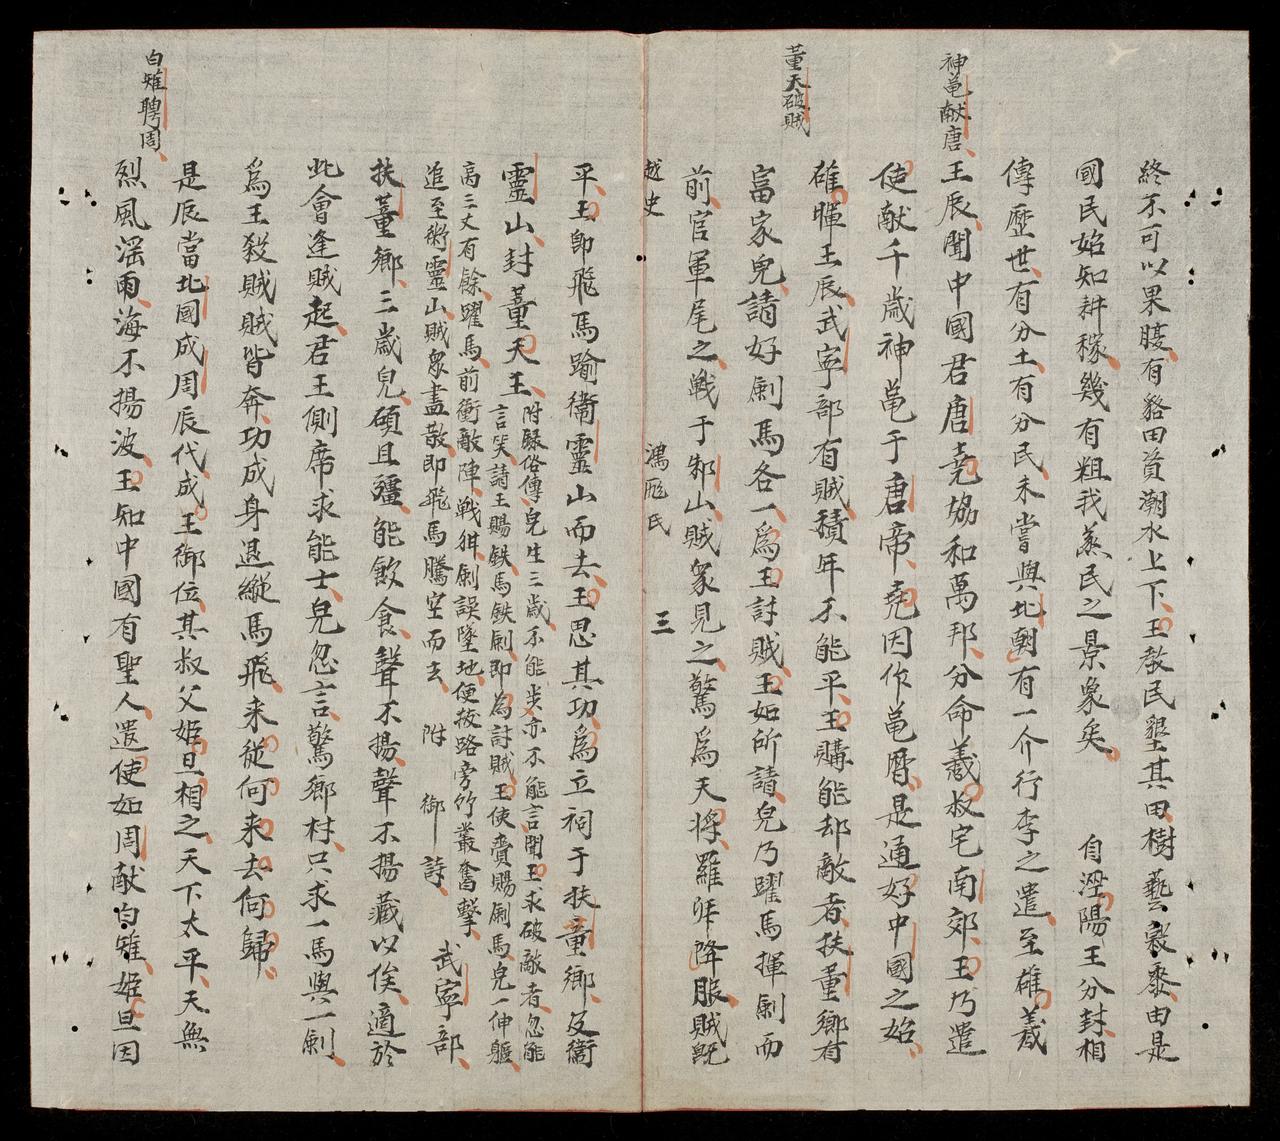 終不可以果腹有貉田資潮水上下王教民墾其田樹藝穀黍由是
國民始知耕稼幾有粗我蒸民之景象矣 自涇陽王分封相
傳歷世有分土有分民未嘗與北朝有一介行李之遣至雄羲
神黽献唐
王辰聞中國君唐堯協和萬邦分命羲叔宅南郊王乃遣
使献千歲神黽于唐帝堯因作黽曆是通好中國之始
雄暉王辰武寧部有賊積年不能平王購能却敵者扶董鄉有
董天破賊
富家兒請好劎馬各一爲王討賊王如所請兒乃躍馬揮劎而
前官軍尾之戰于鄒山賊衆見之驚爲天將羅拜降服賊既
越史 鴻厖氏 三
平王即飛馬踰衞靈山而去王思其功爲立祠于扶董鄉及衞
靈山封董天王
附録俗傳兒生三歲不能步亦不能言聞王求破敵者忽能
言笑請王賜鉄馬鉄劎即為討賊王使賫賜劎馬兒一伸軀
高三丈有餘躍馬前衝敵陣戰酣劎誤墜地便拔路旁竹叢奮擊
追至衞靈山賊衆盡散即飛馬騰空而去 附 御詩 武寧部
扶董鄉三歲兒碩且彊能飲食聲不揚聲不揚藏以俟適於
此會逢賊起君王側席求能士兒忽言驚鄉村只求一馬與一劎
爲王殺賊賊皆奔功成身退縱馬飛来從何来去何歸
是辰當北國成周辰代成王御位其叔父姬旦相之天下太平天無
白雉聘周
烈風滛雨海不揚波王知中國有聖人遣使如周献白雉姬旦因